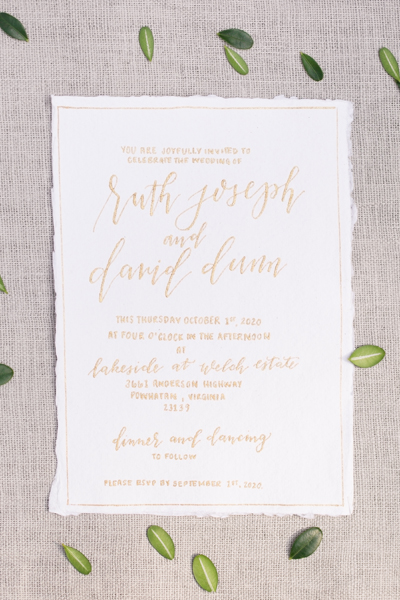 YOU ARE JOYFULLY INVITED TO
CELEBRATE THE WEDDING OF
ruth joseph
and
david dunn
THIS THURSDAY OCTOBER 1st, 2020
AT FOUR O'CLOCK ON THE AFTERNOON
AT
lakeside at welch estate
2661 ANDERSON HIGHWAY
POWHATAN, VIRGINIA
23139
dinner and dancing
TO FOLLOW
PLEASE RSVP BY SEPTEMBER 1st, 2020